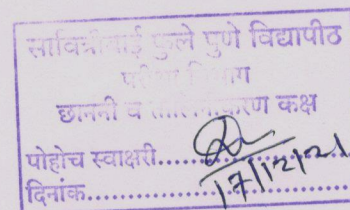 सावित्रीबाई फुले पुणे विद्यापीठ
परीक्षा विभाग
छाननी व कक्ष
पोहोच स्वाक्षरी..............
दिनांक.................... 17/12/21